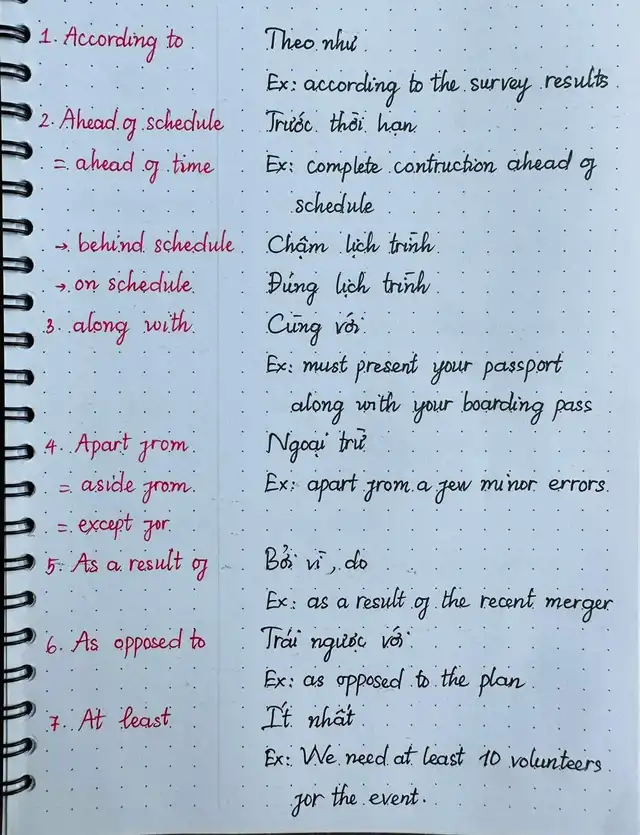 1. According to Theo như
Ex: according to the survey results
2. Ahead of schedule Trước thời hạn
= ahead of time Ex: complete contruction ahead of
schedule
→ behind schedule Chậm lịch trình
→ on schedule Đúng lịch trình
3. along with Cùng với
Ex: must present your passport
along with your boarding pass
4. Apart from Ngoại trừ
= aside from Ex: apart from a few minor errors
= except for
5. As a result of Bởi vì, do
Ex: as a result of the recent merger
6. As opposed to Trái ngược với
Ex: as opposed to the plan
7. At least Ít nhất
Ex: We need at least 10 volunteers
for the event.